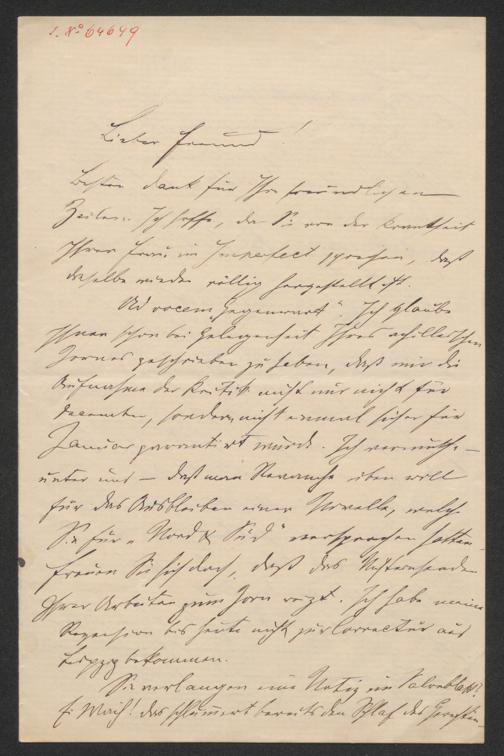 I. N° 64649
Lieber Freund!
Besten Dank für Ihre freundlichen
Zeilen. Ich hoffe, da Sie von der Krankheit
Ihrer Frau im Imperfect sprechen, daß
dieselbe wieder völlig hergestellt ist.
Ad vocem „Gegenwart". Ich glaube
Ihnen schon bei Gelegenheit Ihres achilleischen
Zornes geschrieben zu haben, daß mir die
Aufnahme der Kritik nicht nur nicht für
December, sondern nicht einmal sicher für
Januar garantirt wurde. Ich vermuthe –
unter uns – daß man Revanche üben will
für das Ausbleiben einer Novelle, welche
Sie für „Nord & Süd" versprochen hatten.
Freuen Sie sich doch, daß das
Ihrer Arbeiten zum Zorn reizt. Ich habe meine
Rezension bis heute nicht zur Correctur aus
Leipzig bekommen.
Sie verlangen eine Notiz im Salonblatt?
Ei Waih! das schlummert bereits den Schlaf des Gerechten.